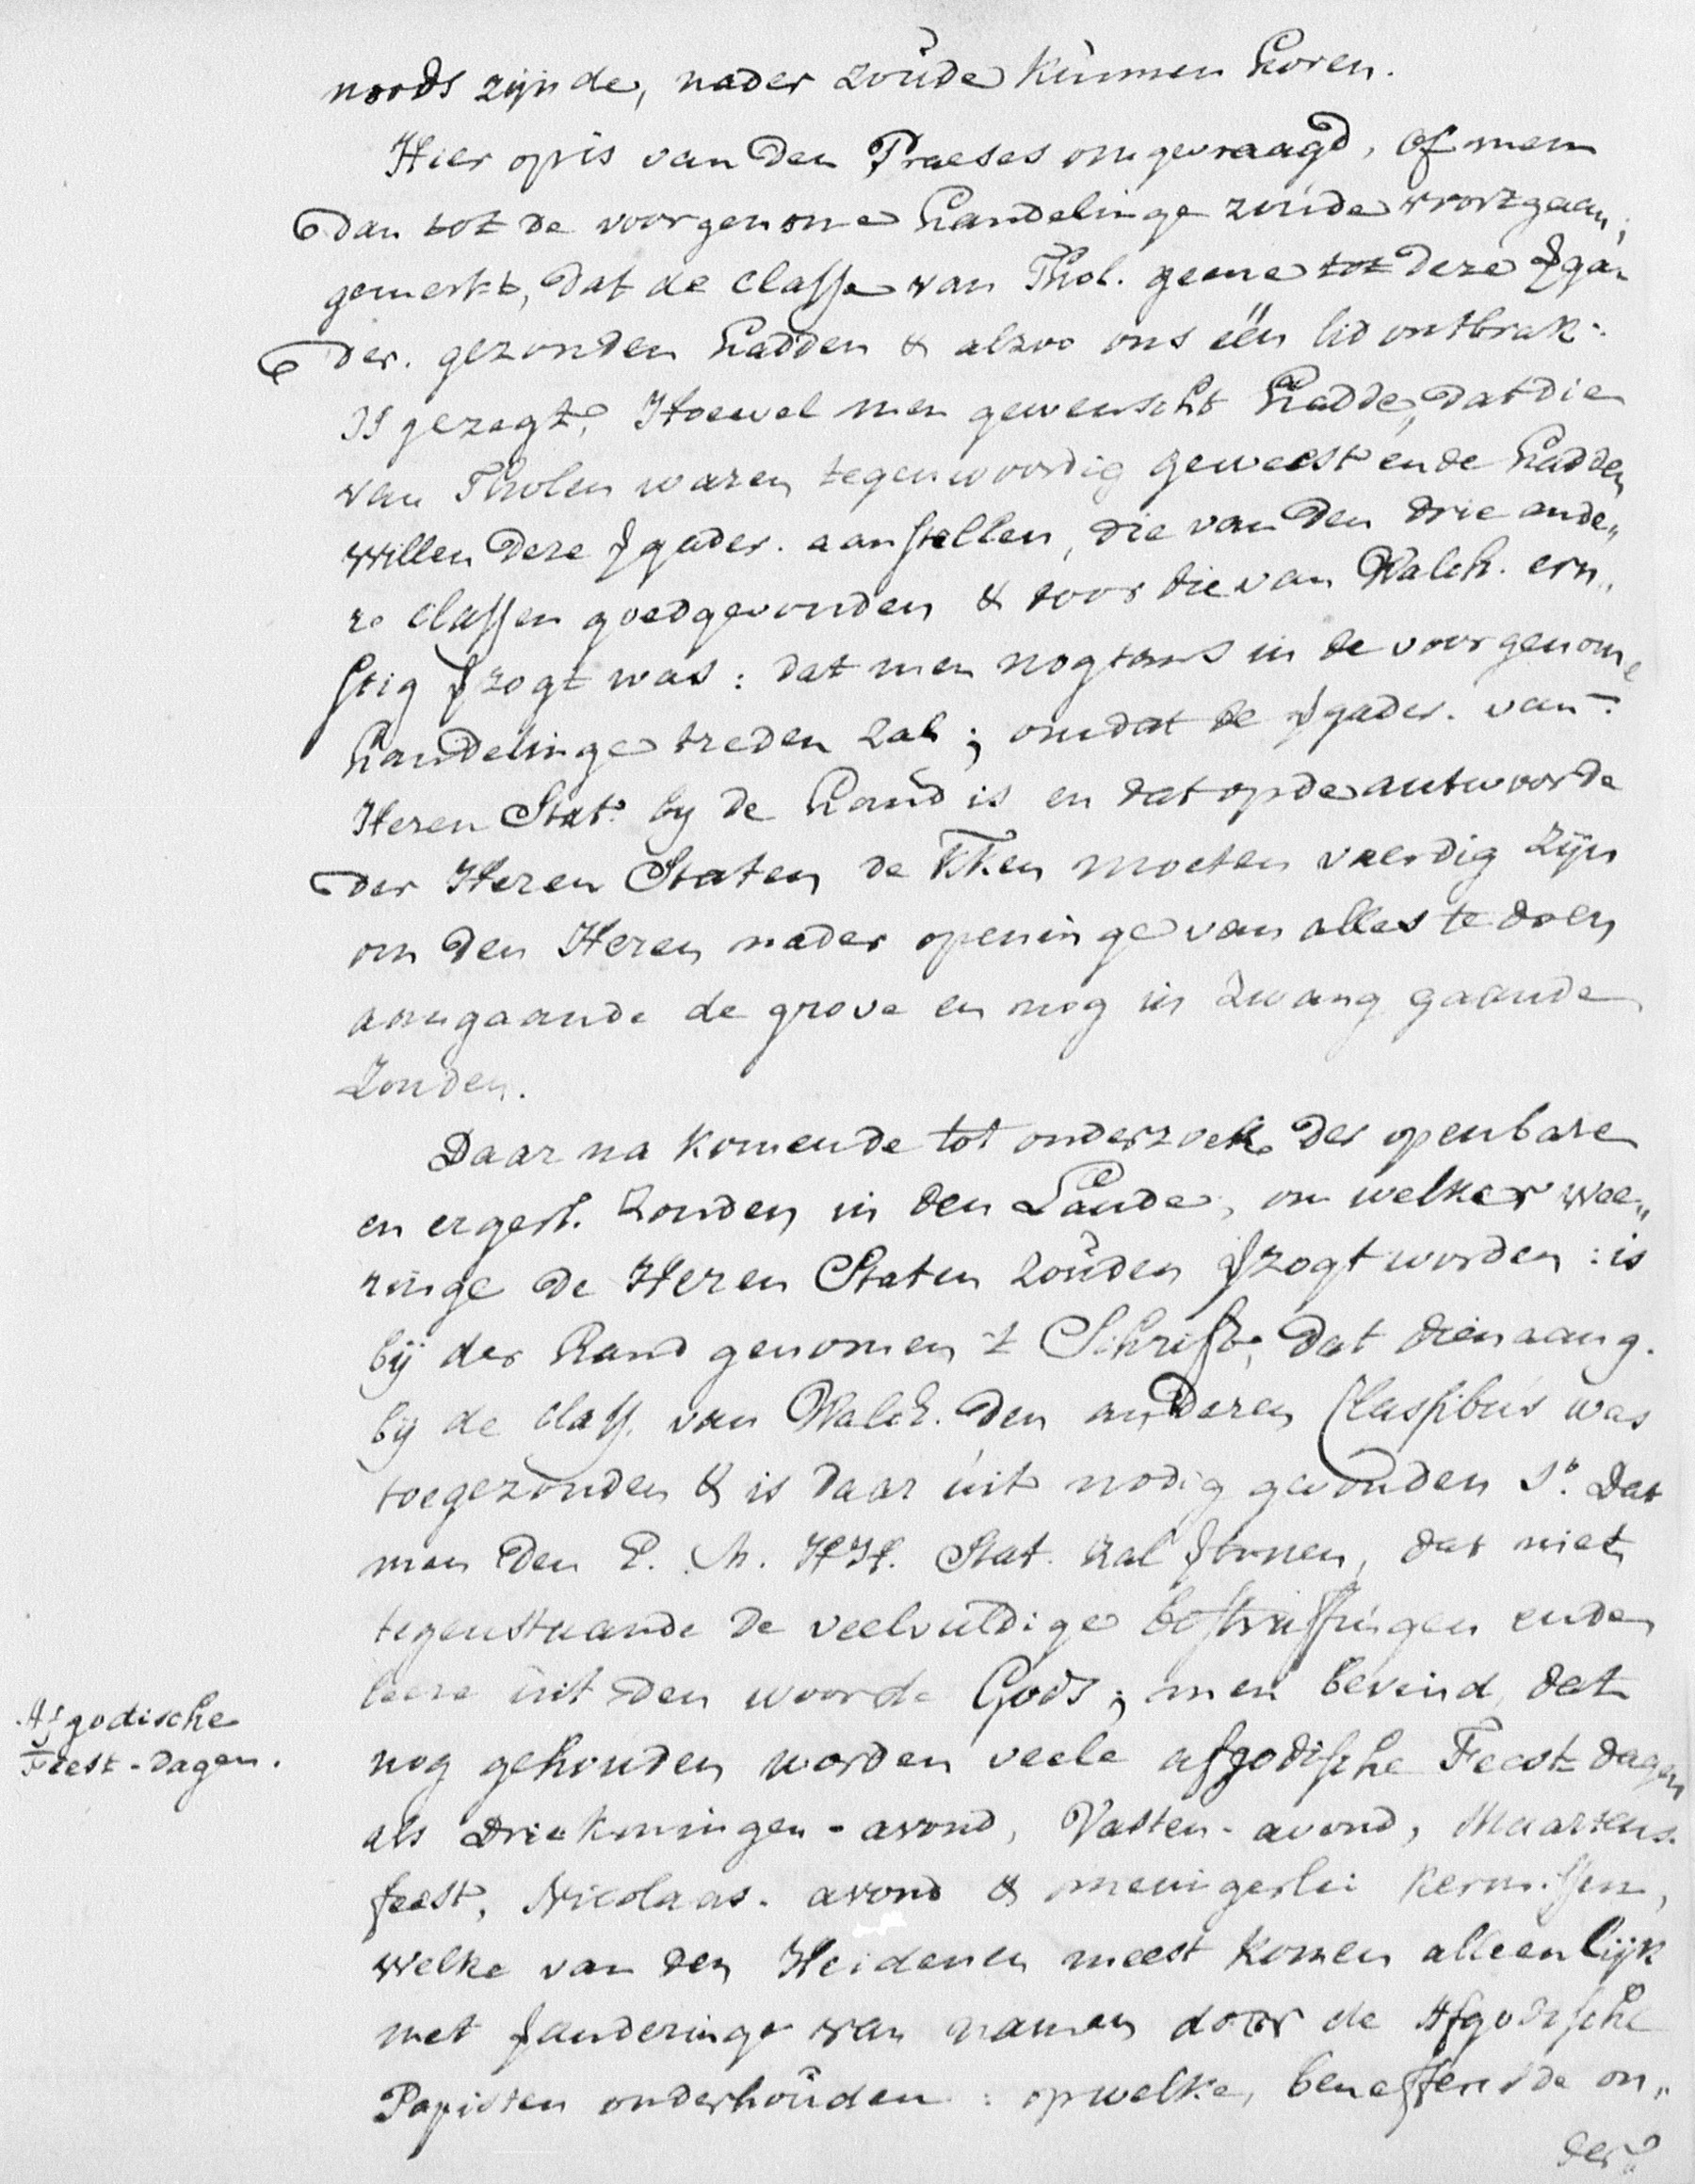 noods zijnde, nader zoude kunnen horen.
Hier op is van den Praeses omgevraagd, of men
dan tot de voorgenome handelinge zoude voortgaan;
gemerkt, dat de classe van Thol. geene tot deze Vgâ-
der. gezonden hadden & alzoo ons één lid ontbrak:
Is gezegt, Hoewel men gewenscht hadde, dat die
van Tholen waren tegenwoordig geweest ende hadden
willen deze Vgader. aanstellen, die van den drie ande„
re classen goedgevonden & door die van Walch. ern„
stig Vzogt was: dat men nogtans in de voorgenome
handelinge treden zal; omdat de Vgader. van
Heren Stat. by de hand is en dat op de antwoorde
der Heren Staten de KKen moeten vaerdig zijn
om den Heren nader openinge van alles te doen
aangaande de grove en nog in zwang gaande
Zonden.
Daar na komende tot onderzoek der openbare
en ergerl. zonden in den Lande, om welker wee„
ringe de Heren Staten zouden Vzogt worden: is
bij der hand genomen 't Schrift, dat dienaang.
bij de class. van Walch. den anderen Classibus was
toegezonden & is daar uit nodig gevonden 1°. Dat
men den E. M. HH. Stat. zal Vtonen, dat niet
tegenstaande de veelvuldige bestraffingen ende
leere uit den woorde Gods; men bevind, dat
Afgodische
Feest-dagen.
nog gehouden worden veele afgodische Feestdagen
als Driekoningen-avond, Vasten-avond, Maartens-
feest, Nicolaas-avond & menigerlei kermissen,
welke van den Heidenen meest komen alleenlijk
met Vanderinge van namen door de Afgodische
Papisten onderhouden: op welke, beneffens de on„
der